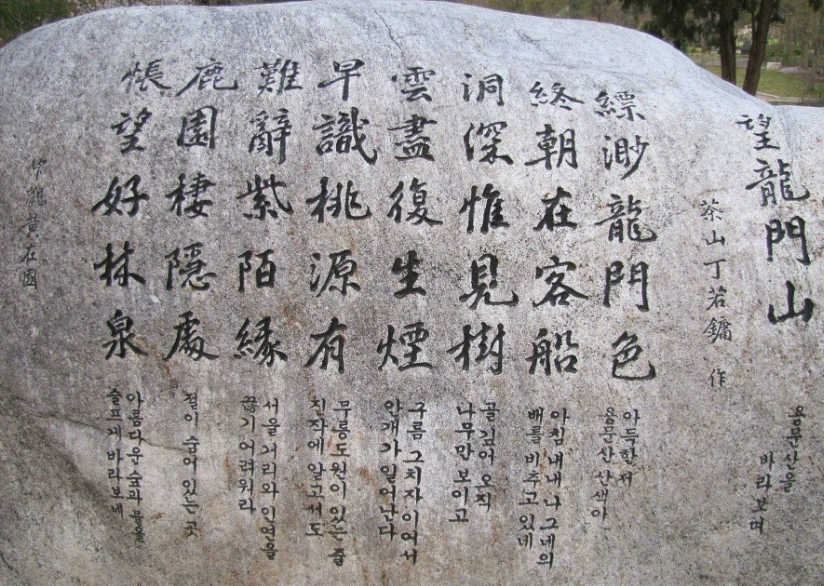 望龍門山
용문산을
바라보며
茶山丁若鏞 作
縹渺龍門色
아득한저
용문산 산색이
終朝在客船
아침내내 나그네의
배를 비추고 있네
洞深惟見樹
골 깊어 오직
나무만 보이고
雲盡復生煙
구름 그치자 이어서
안개가 일어난다
早識桃源有
무릉도원이 있는 줄
진작에 알고서도
難辭紫陌緣
서울 거리와 인연을
끊기 어려워라
鹿園棲隱處
절이 숨어 있는 곳
悵望好林泉
아름다운 숲과 물을
슬프게 바라보네
黃在國